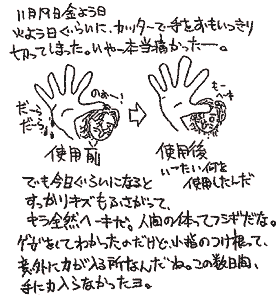 11月19日金よう日
火よう日ぐらいに、カッターで手をおもいっきり
切ってしまった。いやー本当痛かったー。
のおー!
だーら
だーら
もーヘーキ
使用前
使用後
いったい何を
使用したんだ
でも今日ぐらいになると
すっかりキズもふさがって、
もう全然ヘーキだ。人間の体ってフシギだな。
ケガをしてわかったのだけど、小指のつけ根って、
意外に力が入る所なんだね。この数日間、
手に力入らなかったヨ。